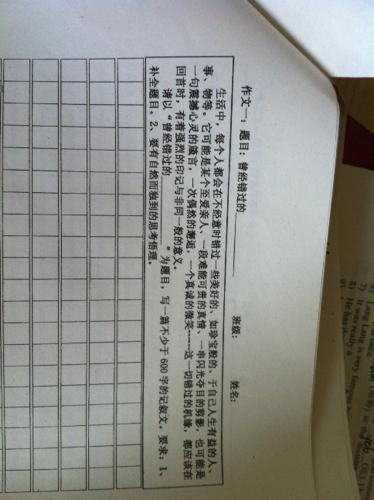 作文一：题目：曾经错过的________ 班级： 姓名：
生活中，每个人都会在不经意时错过一些美好的、如珍宝般的、于自己人生有益的人、
事、物等。它可能是某个至爱亲人、一段难能可贵的真情、一串闪光夺目的剪影，也可能是
一句震撼心灵的箴言，一次偶然的邂逅，一个真诚的微笑……这一切错过的机缘，都应该在
回首时，有着强烈的印记与非同一般的意义。
请以“曾经错过的________”为题目，写一篇不少于600字的记叙文。要求：1、
补全题目。2、要有自然而独到的思考悟理。
7) It was really
8) He has
9)